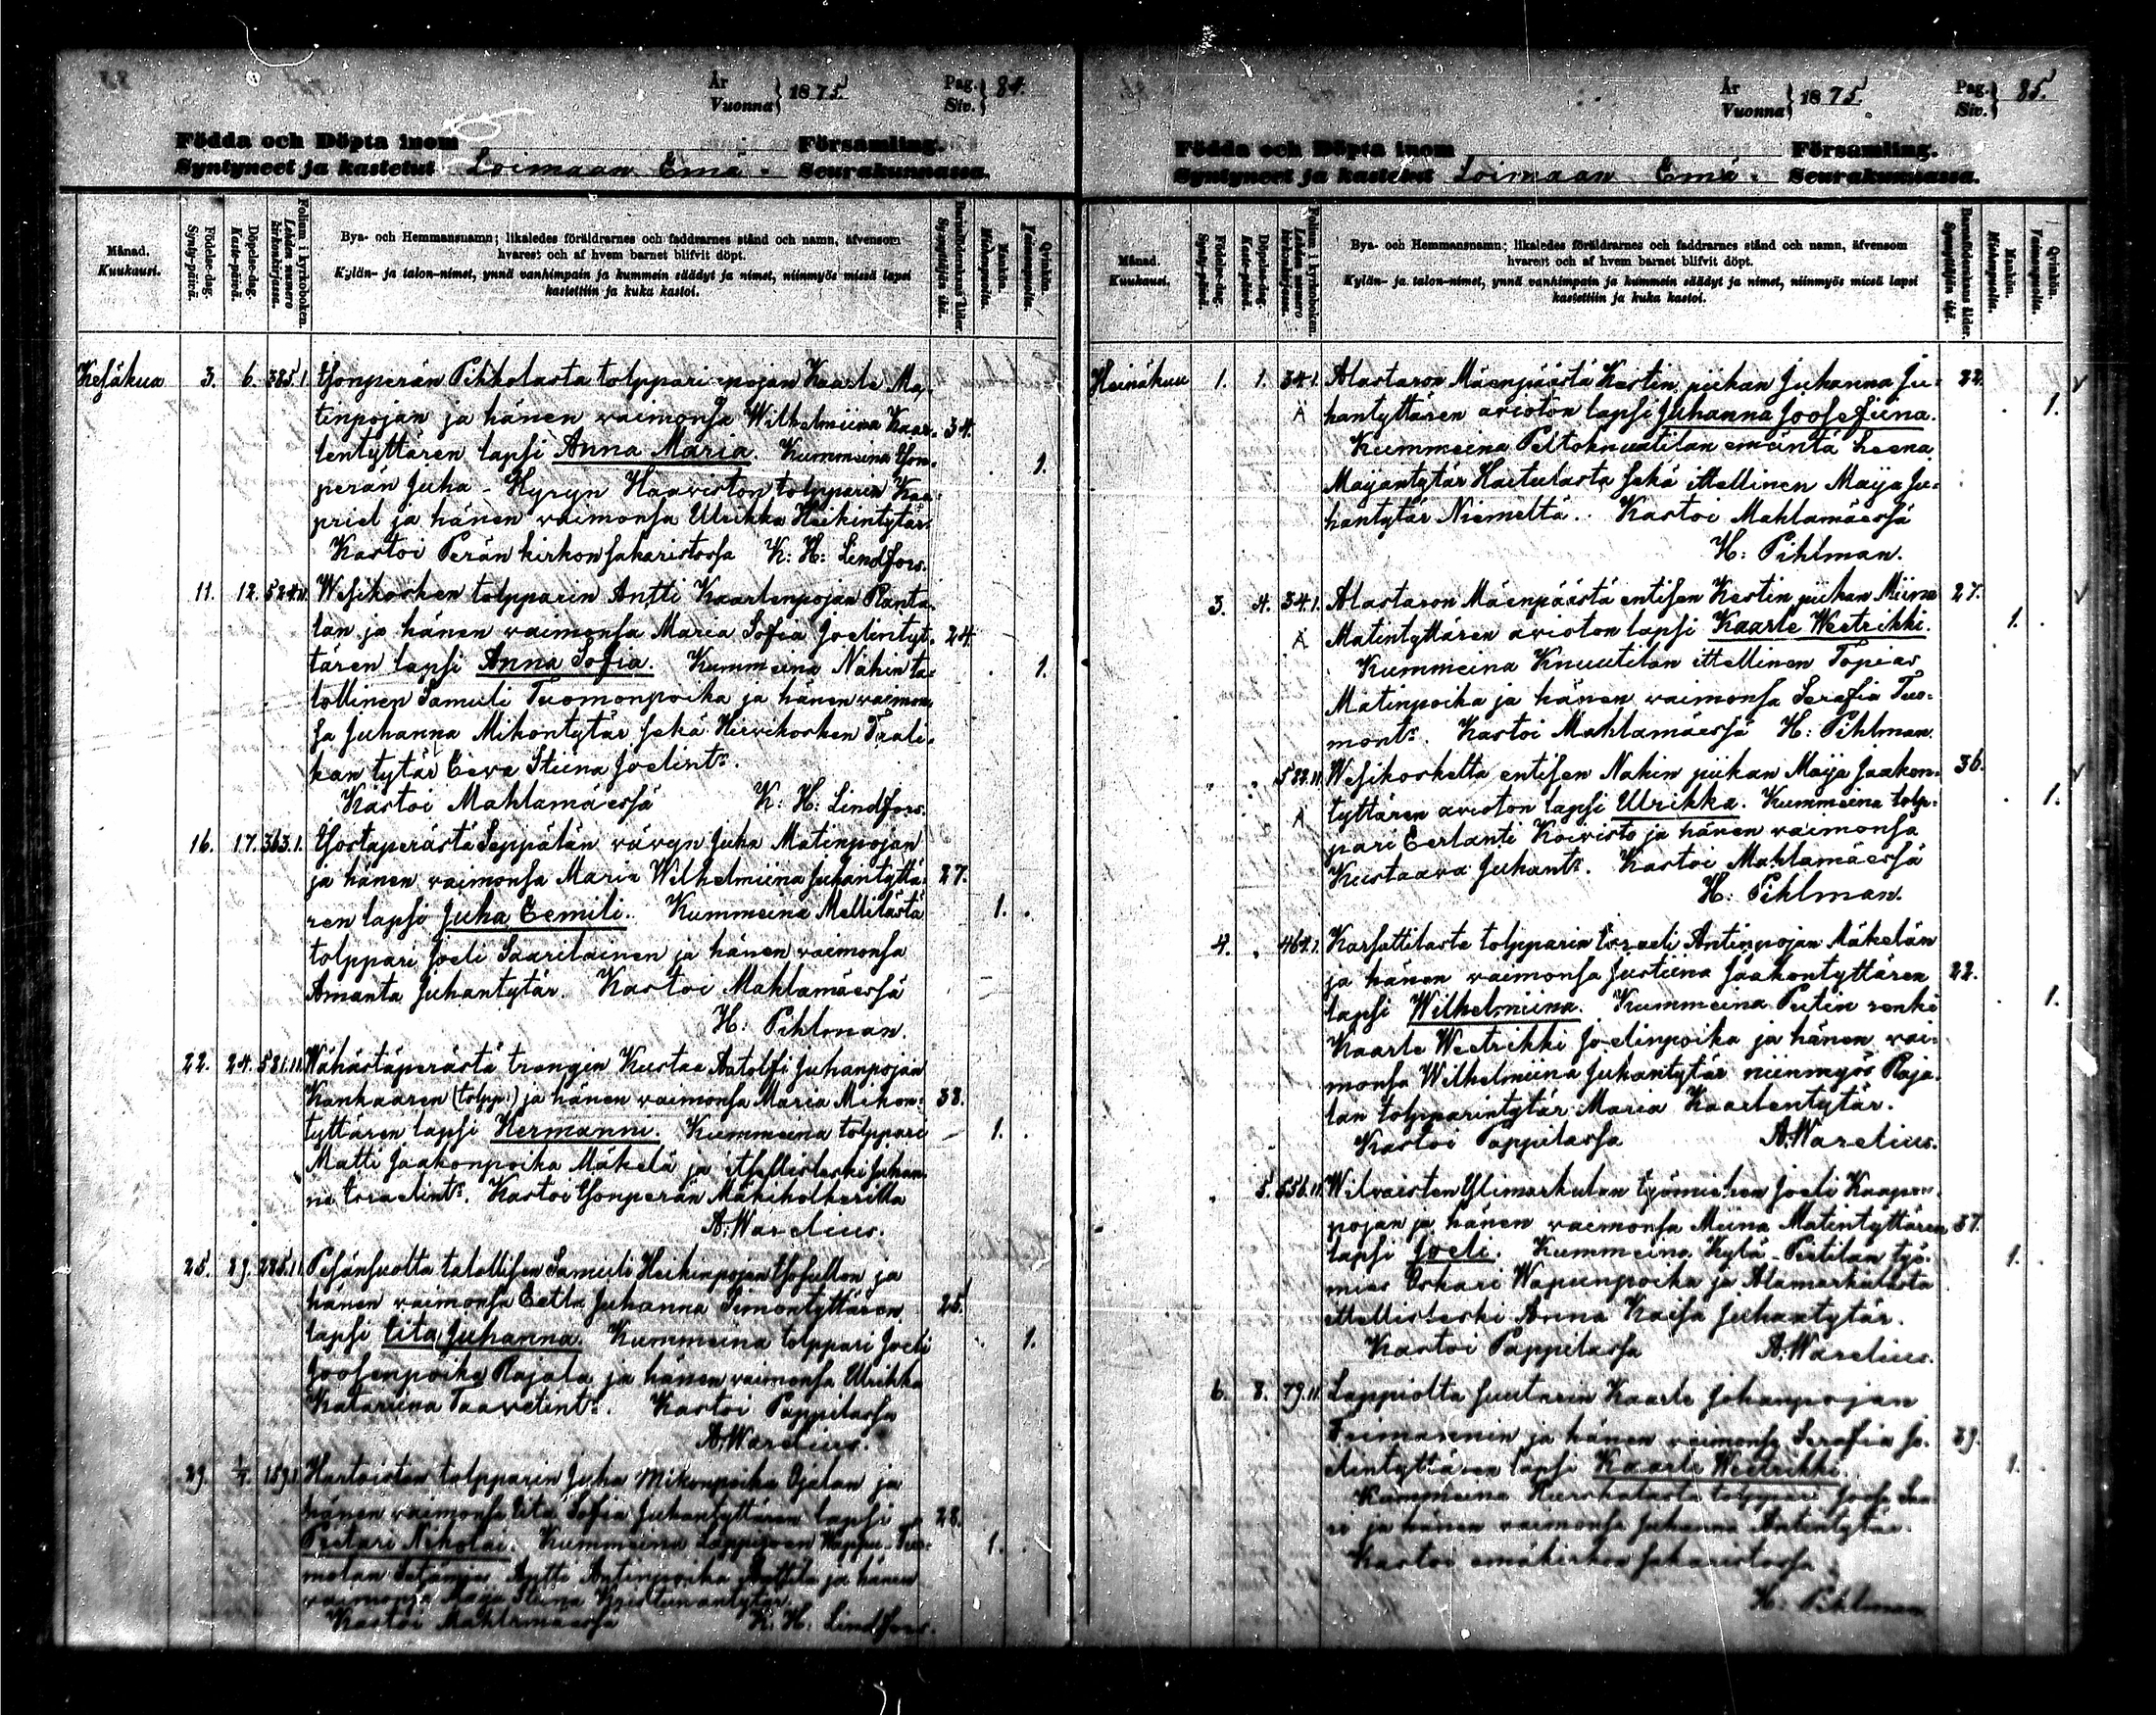 År
Vuonna } 1875.
Pag.
Siv. } 84.
Födda och Döpta inom Församling.
Syntyneet ja kastetut Loimaan Emä. Seurakunnassa.
Månad.
Kuukausi.
Födelse-dag.
Synty-päivä.
Döpelse-dag.
Kaste-päivä.
Folium i kyrkoboken.
Lehden numero kirkonkirjassa.
Bya- och Hemmansnamn; likaledes föräldrarnes och faddrarnes stånd och namn, äfvensom
hvarest och af hvem barnet blifvit döpt.
Kylän- ja talon-nimet, ynnä vanhimpain ja kummein säädyt ja nimet, niinmyös missä lapsi
kastettiin ja kuka kastoi.
Barnaföderskans ålder.
Synnyttäjän ikä.
Mankön.
Miehenpuolia.
Qvinkön.
Vaimonpuolia.
Kesäkuu 3. 6. 385.I. Ysonperän Pikkolasta tolppari-pojan Kaarle Ma-
tinpojan ja hänen vaimonsa Wilhelmiina Kaar- 34.
lentyttären lapsi Anna Maria. Kummeina Yson- 1.
perän Juha-Hyryn Haaviston tolpparin Kaa-
priel ja hänen vaimonsa Ulrikka Heikintytär.
Kastoi Perän kirkon sakaristossa K: H: Lindfors.
11. 12. 524.II. Wesikosken tolpparin Antti Kaarlenpojan Ranta-
lan ja hänen vaimonsa Maria Sofia Joelintyt- 24.
tären lapsi Anna Sofia. Kummeina Nahin ta- 1.
lollinen Samuli Tuomonpoika ja hänen vaimon-
sa Juhanna Mikontytär sekä Hirvikosken
kan tytär Eeva Stiina Joelint:r.
Kastoi Mahlamäessä K: H: Lindfors.
16. 17. 363.I. Ysostaperästä Seppälän vävyn Juha Matinpojan
ja hänen vaimonsa Maria Wilhelmiina Juhantyttä- 27.
ren lapsi Juha Eemili. Kummeina Mellilästä 1.
tolppari Joeli Saarilainen ja hänen vaimonsa
Amanta Juhantytär. Kastoi Mahlamäessä
H: Pihlman.
22. 24. 581.II. Wähästäperästä trengin Kustaa Aatolfi Juhanpojan
Kankaaren (tolpp:) ja hänen vaimonsa Maria Mikon- 38.
tyttären lapsi Hermanni. Kummeina tolppari 1.
Matti Jaakonpoika Mäkelä ja itsellisleski Juhan-
na Israelint:r. Kastoi Ysonperän Mäkiholkerilla
A. Warelius.
25. 29. 285.II. Pesänsuolta talollisen Samuli Heikinpojan Ysosuллon ja
hänen vaimonsa Eetla Juhanna Simontyttären 25.
lapsi Iita Juhanna. Kummeina tolppari Joeli 1.
Joosenpoika Rajala ja hänen vaimonsa Ulrikka
Katariina Taavetint:r. Kastoi Pappilassa
A. Warelius.
29. 1/7. 159.I. tolpparin Juha Mikonpoika Ojalan ja
hänen vaimonsa Iita Sofia Juhantyttären lapsi 28.
Pietari Nikolai. Kummeina 1.
Antti Antinpoika ja hänen
vaimonsa Maija Stiina Kristianantytär.
Kastoi Mahlamäessä K: H: Lindfors.
År
Vuonna } 1875.
Pag.
Siv. } 85.
Födda och Döpta inom Församling.
Syntyneet ja kastetut Loimaan Emä. Seurakunnassa.
Månad.
Kuukausi.
Födelse-dag.
Synty-päivä.
Döpelse-dag.
Kaste-päivä.
Folium i kyrkoboken.
Lehden numero kirkonkirjassa.
Bya- och Hemmansnamn; likaledes föräldrarnes och faddrarnes stånd och namn, äfvensom
hvarest och af hvem barnet blifvit döpt.
Kylän- ja talon-nimet, ynnä vanhimpain ja kummein säädyt ja nimet, niinmyös missä lapsi
kastettiin ja kuka kastoi.
Barnaföderskans ålder.
Synnyttäjän ikä.
Mankön.
Miehenpuolia.
Qvinkön.
Vaimonpuolia.
Heinäkuu 1. 1. 34.I. Alastaron Mäenpäästä Kestin piikan Juhanna Ju- 22.
Ä hantyttären avioton lapsi Juhanna Joosefiina. 1.
Kummeina Peltoknuutilan emäntä Leena
Maijantytär Haitulasta sekä ittellinen Maija Ju-
hantytär Niemeltä. Kastoi Mahlamäessä
H: Pihlman.
3. 4. 34.I. Alastaron Mäenpäästä entisen Kestin piikan Miina 27.
Ä Matintyttären avioton lapsi Kaarle Weetrikki. 1.
Kummeina Knuutilan ittellinen Topias
Matinpoika ja hänen vaimonsa Serafia Tuo-
mont:r. Kastoi Mahlamäessä H: Pihlman.
" " 522.II. Wesikoskelta entisen Nahin piikan Maija Jaakon- 36.
Ä tyttären avioton lapsi Ulrikka. Kummeina tolp- 1.
pari Eerlanti Koivisto ja hänen vaimonsa
Kustaava Juhant:r. Kastoi Mahlamäessä
H: Pihlman.
4. " 462.I. Karsattilasta tolpparin Israeli Antinpojan Mäkelän
ja hänen vaimonsa Justiina Jaakontyttären 22.
lapsi Wilhelmiina. Kummeina Pietin renki 1.
Kaarle Weetrikki Joelinpoika ja hänen vai-
monsa Wilhelmiina Juhantytär niinmyös Raja-
lan tolpparintytär Maria Kaarlentytär.
Kastoi Pappilassa A. Warelius.
" 5. 556.II. Wilvaisten Ylimarkulan työmiehen Joeli Kaapon-
pojan ja hänen vaimonsa Miina Matintyttären 37.
lapsi Joeli. Kummeina Kylä-Pietilän työ- 1.
mies Oskari Wapunpoika ja Alamarkulasta
ittellisleski Anna Kaisa Juhantytär.
Kastoi Pappilassa A. Warelius.
6. 8. 79.II. Lappiolta suutarin Kaarle Johanpojan
ja hänen vaimonsa Serafia Jo- 39.
elintyttären lapsi Kaarle Weetrikki. 1.
Kummeina tolppari
ja hänen vaimonsa Juhanna Antintytär.
Kastoi emäkirkon sakaristossa
H: Pihlman.